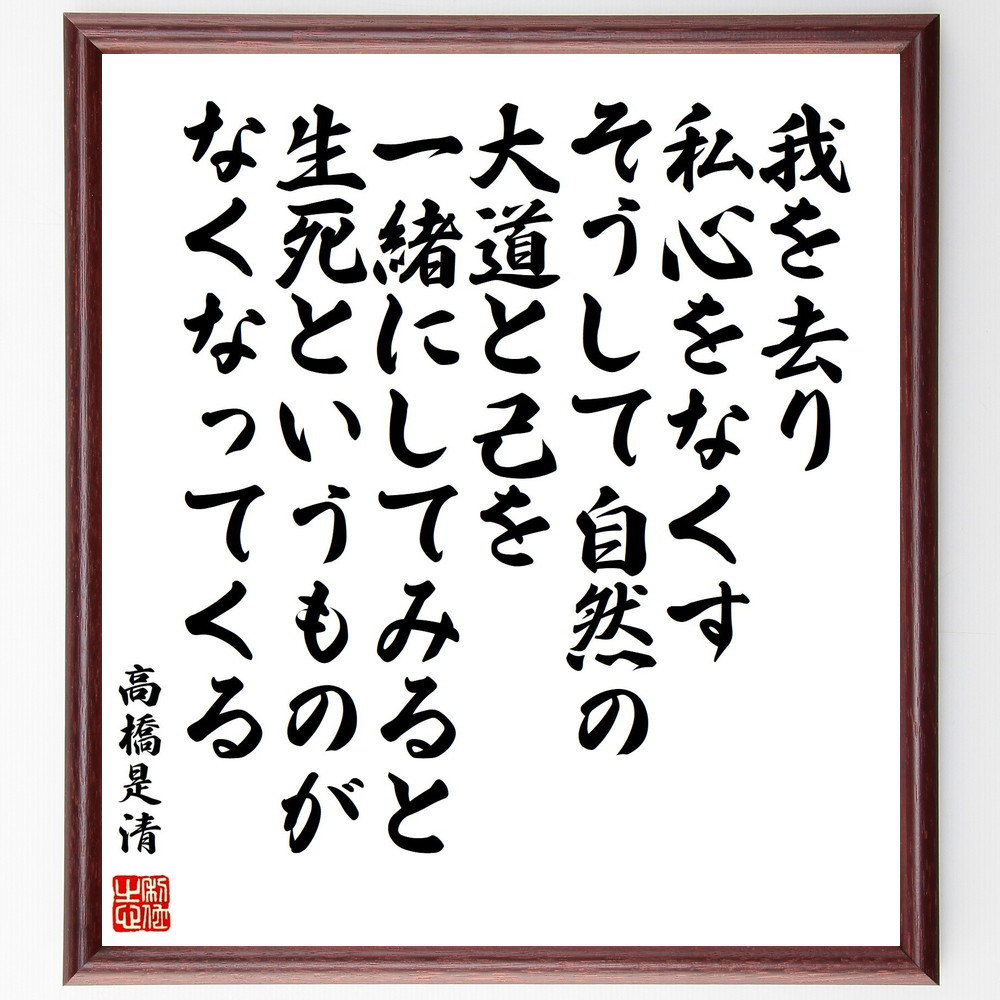 我を去り
私心をなくす
そうして自然の
大道と己を
一緒にしてみると
生死というものが
なくなってくる
高橋是清